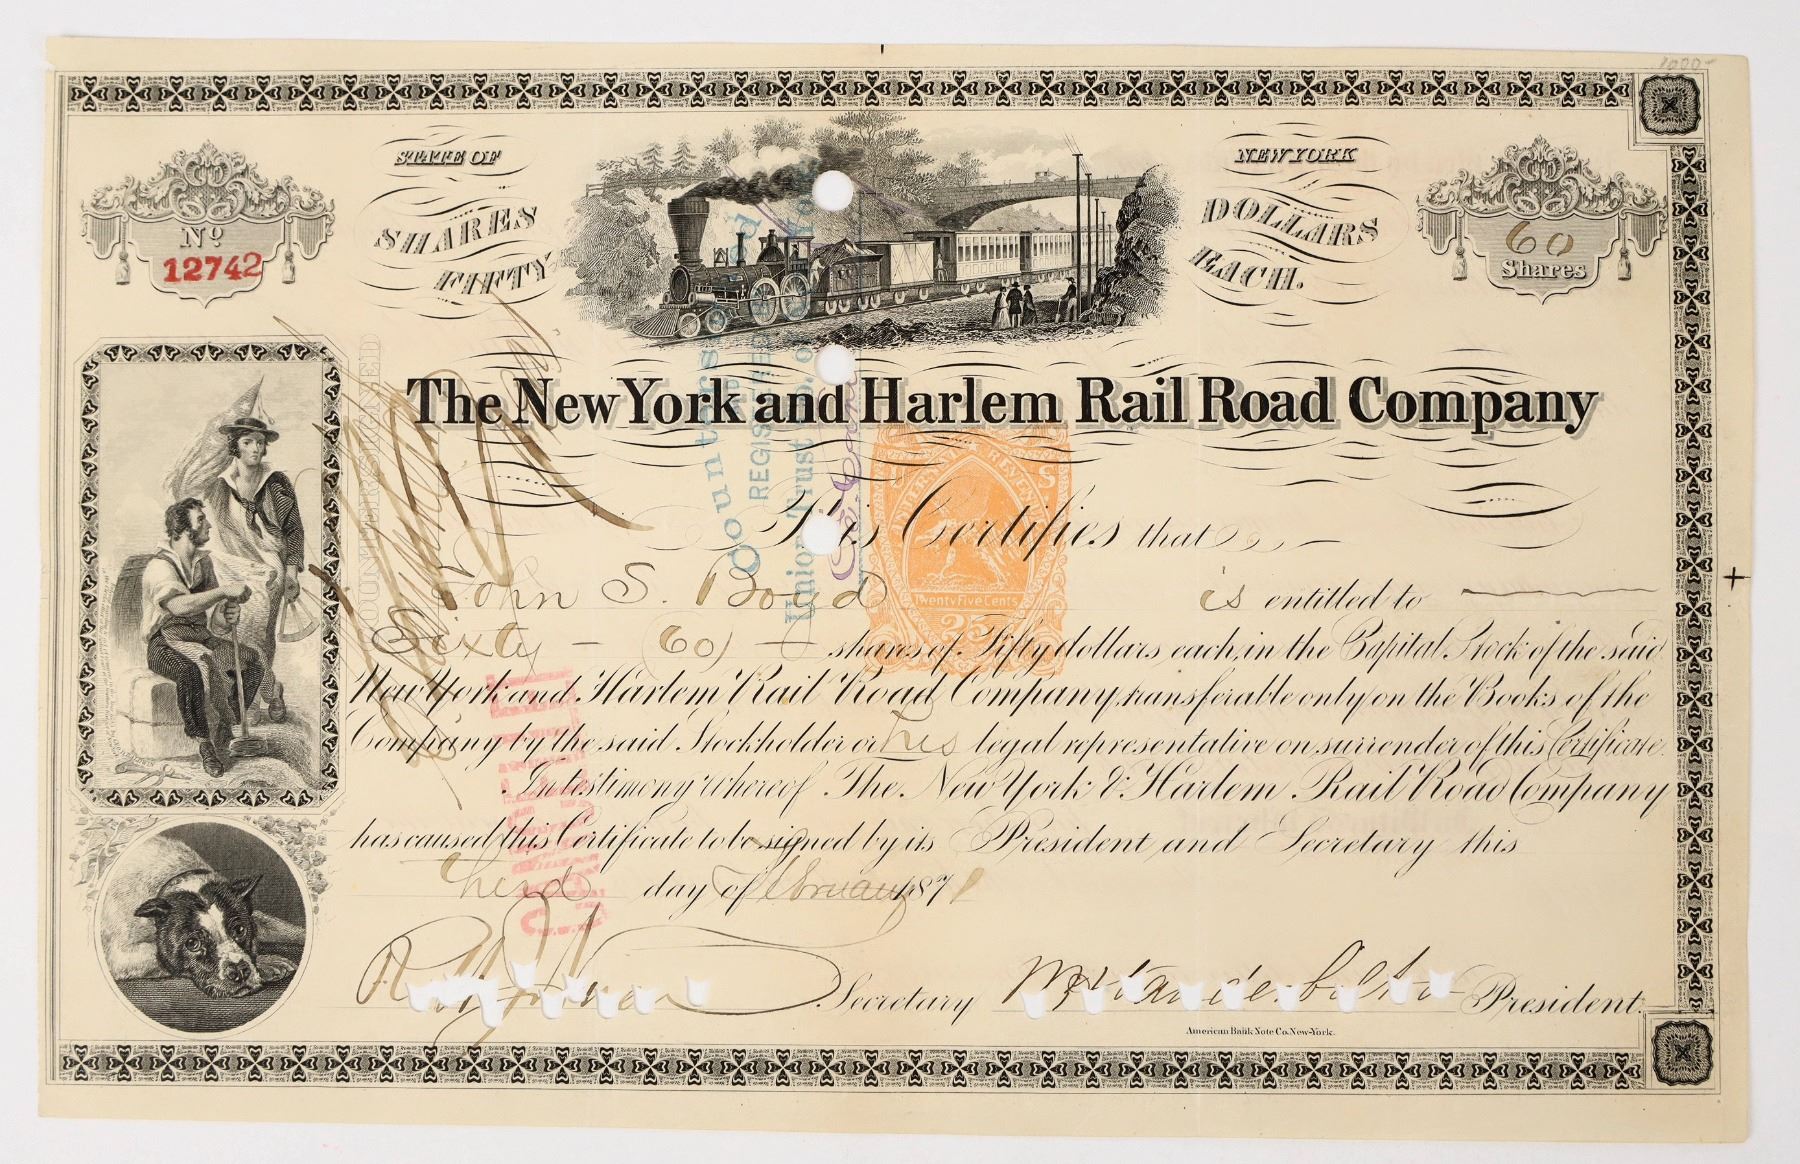 1000
STATE OF
NEW YORK
No.
12742
SHARES
FIFTY
DOLLARS
EACH.
60
Shares
The New York and Harlem Rail Road Company
COUNTERSIGNED
Countersigned
REGISTERED
Union Trust Co. of
INTERNAL REVENUE
Twenty Five Cents
25
This Certifies that
John S. Boyd is entitled to
Sixty - (60) - shares of Fifty dollars each, in the Capital Stock of the said
New York and Harlem Rail Road Company, transferable only on the Books of the
Company by the said Stockholder or his legal representative on surrender of this Certificate.
In testimony whereof The New York & Harlem Rail Road Company
has caused this Certificate to be signed by its President and Secretary this
Third day of February 1871
Secretary
Wm H Vanderbilt President.
American Bank Note Co. New-York.